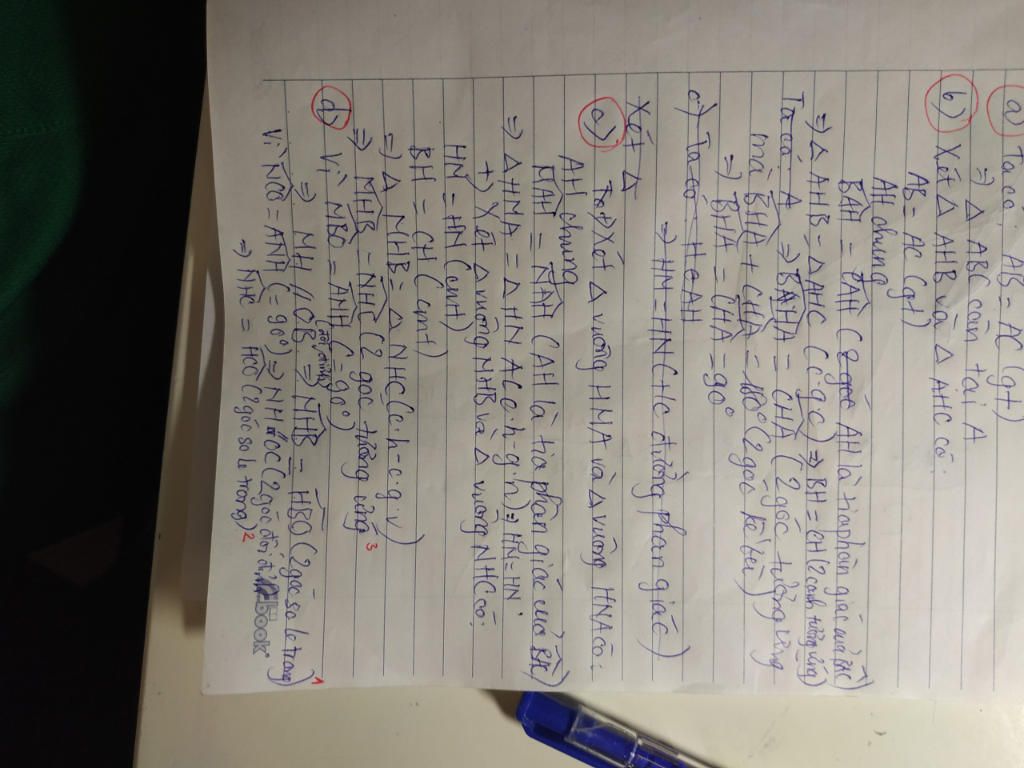 a) Ta có: AB = AC (gt)
=> Δ ABC cân tại A
b) Xét Δ AHB và Δ AHC có:
AB = AC (gt)
AH chung
BAH = CAH ( AH là tia phân giác của BAC)
=> Δ AHB = Δ AHC (c.g.c) => BH = CH (2 cạnh tưởng ứng)
Ta có A => BAHA = CHA (2 góc tưởng ứng
mà BHA + CHA = 180° (2 góc kề bù)
=> BHA = CHA = 90°
c) Ta có H ∈ AH
=> HM = HN ( t/c đường phân giác)
Xét Δ
c) Ta +) Xét Δ vuông HMA và Δ vuông HNA có:
AH chung
MAH = NAH (AH là tia phân giác của BAC)
=> Δ HMA = Δ HNA (c.h-g.n) => HM = HN.
+) Xét Δ vuông MHB và Δ vuông NHC có:
HM = HN (cmt)
BH = CH (cmt)
=> Δ MHB = Δ NHC (c.h-c.g.v)
=> MHB = NHC (2 góc tưởng ứng 3
d) Vì MBO = ANH (= 90°)
=> MH // OB => MHB = HBO (2 góc so le trong) 1
Vì NCO = ANH (= 90°) => NH // OC (2 góc đồng vị
=> NHC = HCO (2 góc so le trong) 2